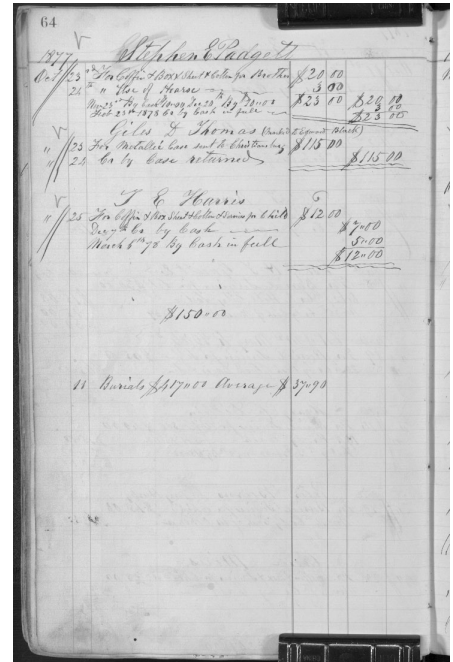 64
V
1877 Stephen E Padgett
Oct 23rd For Coffin & Box & Shect & Cotton for Brother $20 00
24th " Use of Hearse 3 00
$23 00 $20 00
Feb 23rd 1878 Cr by Cash in full 3 00
$23 00
V
Giles D Thomas
" 23 For Metallic Case sent to Christiansburg $115 00
" 24 Cr by Case returned $115 00
V
T E Harris
" 25 For Coffin & Box Sheet & Cotton & Service for Child $12 00
Cr by Cash $7 00
March 6th 78 By Cash in full 5 00
$12 00
$150 00
11 Burials $417 00 Average $37 90